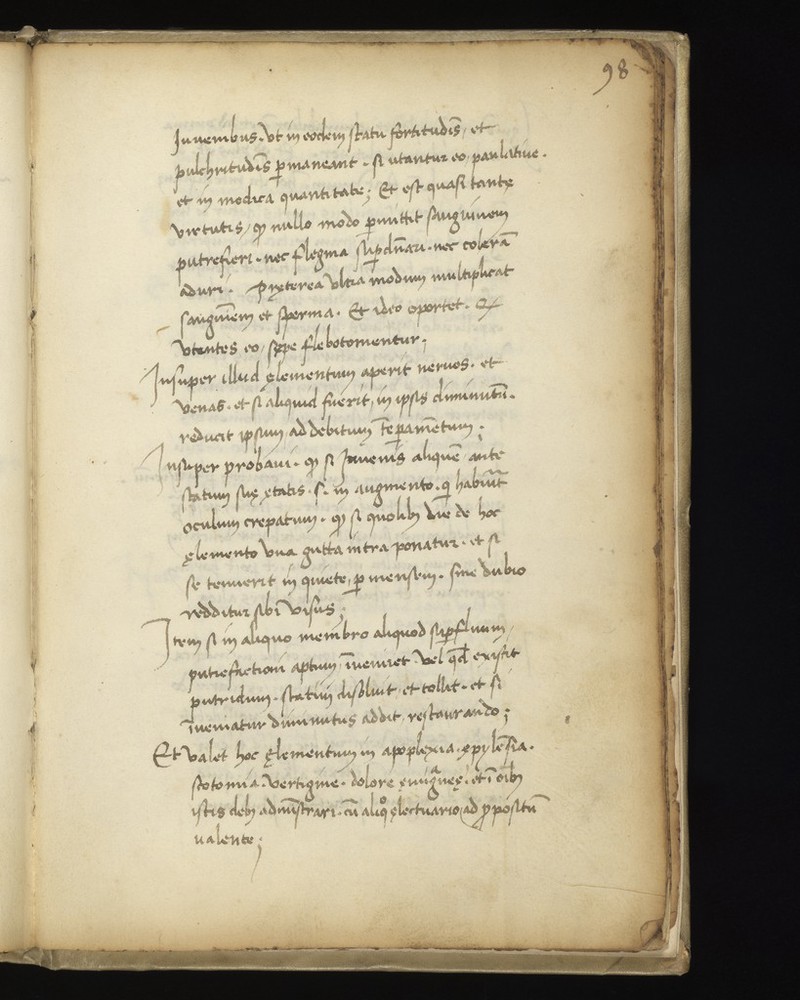 98
Iuvenibus. Vt in eodem statu fortitudis̄, et
pulchritudis̄ p̱maneant. si utantur eo, paulative.
et in modica quantitate; Et est quasi tantę
virtutis, ꝙ nullo modo p̱mittit sanguinem
putrefieri. nec flegma sup̱dn̄ari. nec colerā
aduri. Pręterea vltra modum multiplicat
sanguinem et sperma. Et ideo oportet. ꝙ
vtentes eo, sępe flebotomentur;
Insuper illud ęlementum aperit nervos. et
venas. et si aliquid fuerit, in ipsis diminutū.
reducit ipsum, ad debitum tēparamētum.
Insuper probavi. ꝙ si Iuvenis aliquē ante
statum suę ętatis. s. in augmento. q habuīt
oculum crepatum. ꝙ si quolib die de hoc
ęlemento vna gutta intra ponatur. et si
se tenuerit in quiete, p̱ mensem. sine dubio
redditur sibi visus;
Item si in aliquo membro aliquod sup̱fluum,
putrefactioni aptum, īveniret. vel qd̄ existit
putridum. statim disolvit, et tollit. et si
īveniatur diminutus addit, restaurando;
Et valet hoc ęlementum in apoplexia. ępylēsia.
scotomia. vertigine. dolore
istis deb admīstrari. cū aliq̊ ęlectuario, ad ꝓpositū
valente;